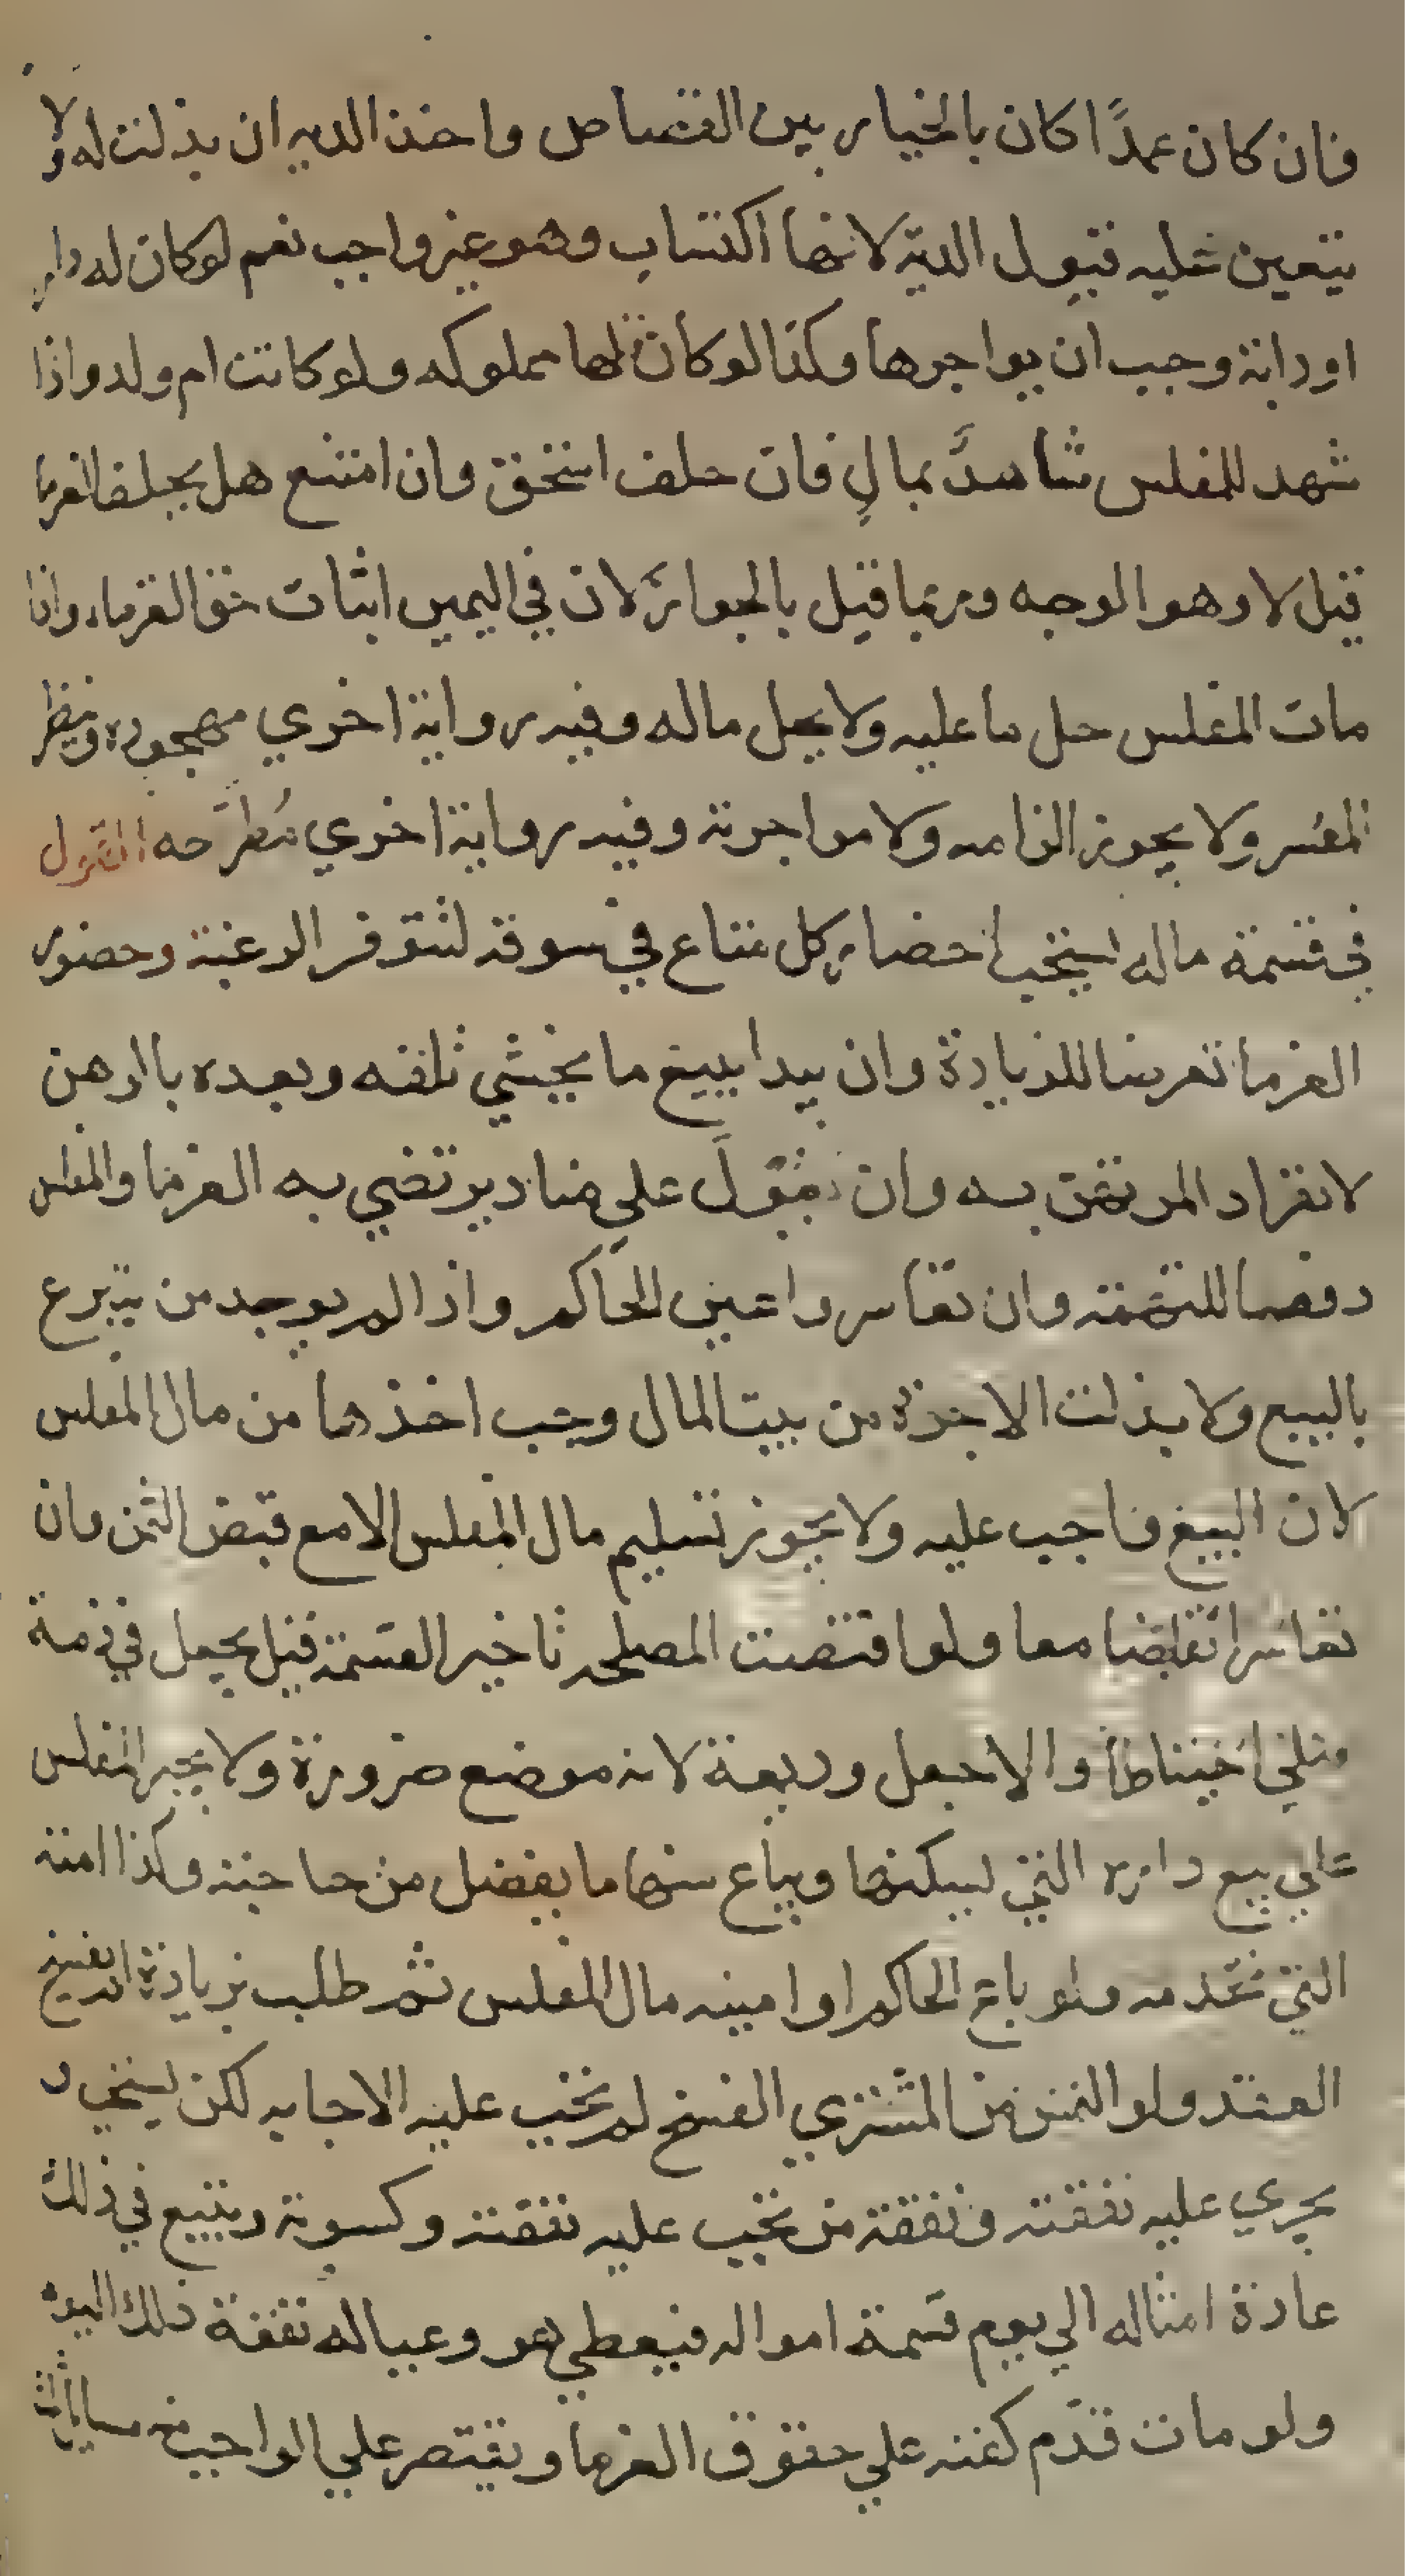 فان كان عمدًا كان بالخيار بين القصاص واخذ الديه ان بذلت له ولا
يتعين عليه قبول الديّة لانها اكتساب وهو غير واجب نعم لو كان له دار
او دابة وجب ان يواجرها وكذا لو كان لها مملوكه ولو كانت ام ولد واذا
شهد للمفلس شاهدٌ بمالٍ فان حلف استحق وان امتنع هل يحلف الغرما
قيل لا وهو الوجه وربما قيل بالجوائز لان في اليمين اثبات حق الغرماء واذا
مات المفلس حل ما عليه ولا يحل ماله وفيه رواية اخري مهجورة وينظر
المعسر ولا يجوز الزامه ولا مواجرته وفيه رواية اخري مُطرَّحه القول
في قسمة ماله يستحب احضار كل متاع في سوقه لتتوفر الرغبة وحضور
الغرما تعريضا للزيادة وان يبدا ببيع ما يخشي تلفه وبعده بالرهن
لانفراد المرتهن به وان يعوّلَ علي مناد يرتضي به الغرما والمفلس
دفعا للتهمة وان تعاسروا عين الحاكم واذا لم يوجد من يتبرع
بالبيع ولا بذلت الاجرة من بيت المال وجب اخذها من مال المفلس
لان البيع واجب عليه ولا يجوز تسليم مال المفلس الا مع قبض الثمن وان
تعاسرا تقابضا معا ولو اقتضت المصلحه تاخير القسمة قيل يجعل في ذمة
ملي احتياطا والا جعل وديعة لانه موضع ضرورة ولا يجبر المفلس
علي بيع داره التي يسكنها ويباع منها ما يفضل من حاجته وكذا امته
التي تخدمه ولو باع الحاكم او امينه مال المفلس ثم طلب بزيادة لم يفسخ
العقد ولو التمس من المشتري الفسخ لم تجب عليه الاجابه لكن يستحب و
يجري عليه نفقته ونفقة من تجب عليه نفقته وكسوته ويتبع في ذلك
عادة امثاله الي يوم قسمة امواله فيعطي هو وعياله نفقة ذلك اليوم
ولو مات قدّم كفنه علي حقوق الغرما ويقتصر علي الواجب منه مسايل ثلاث